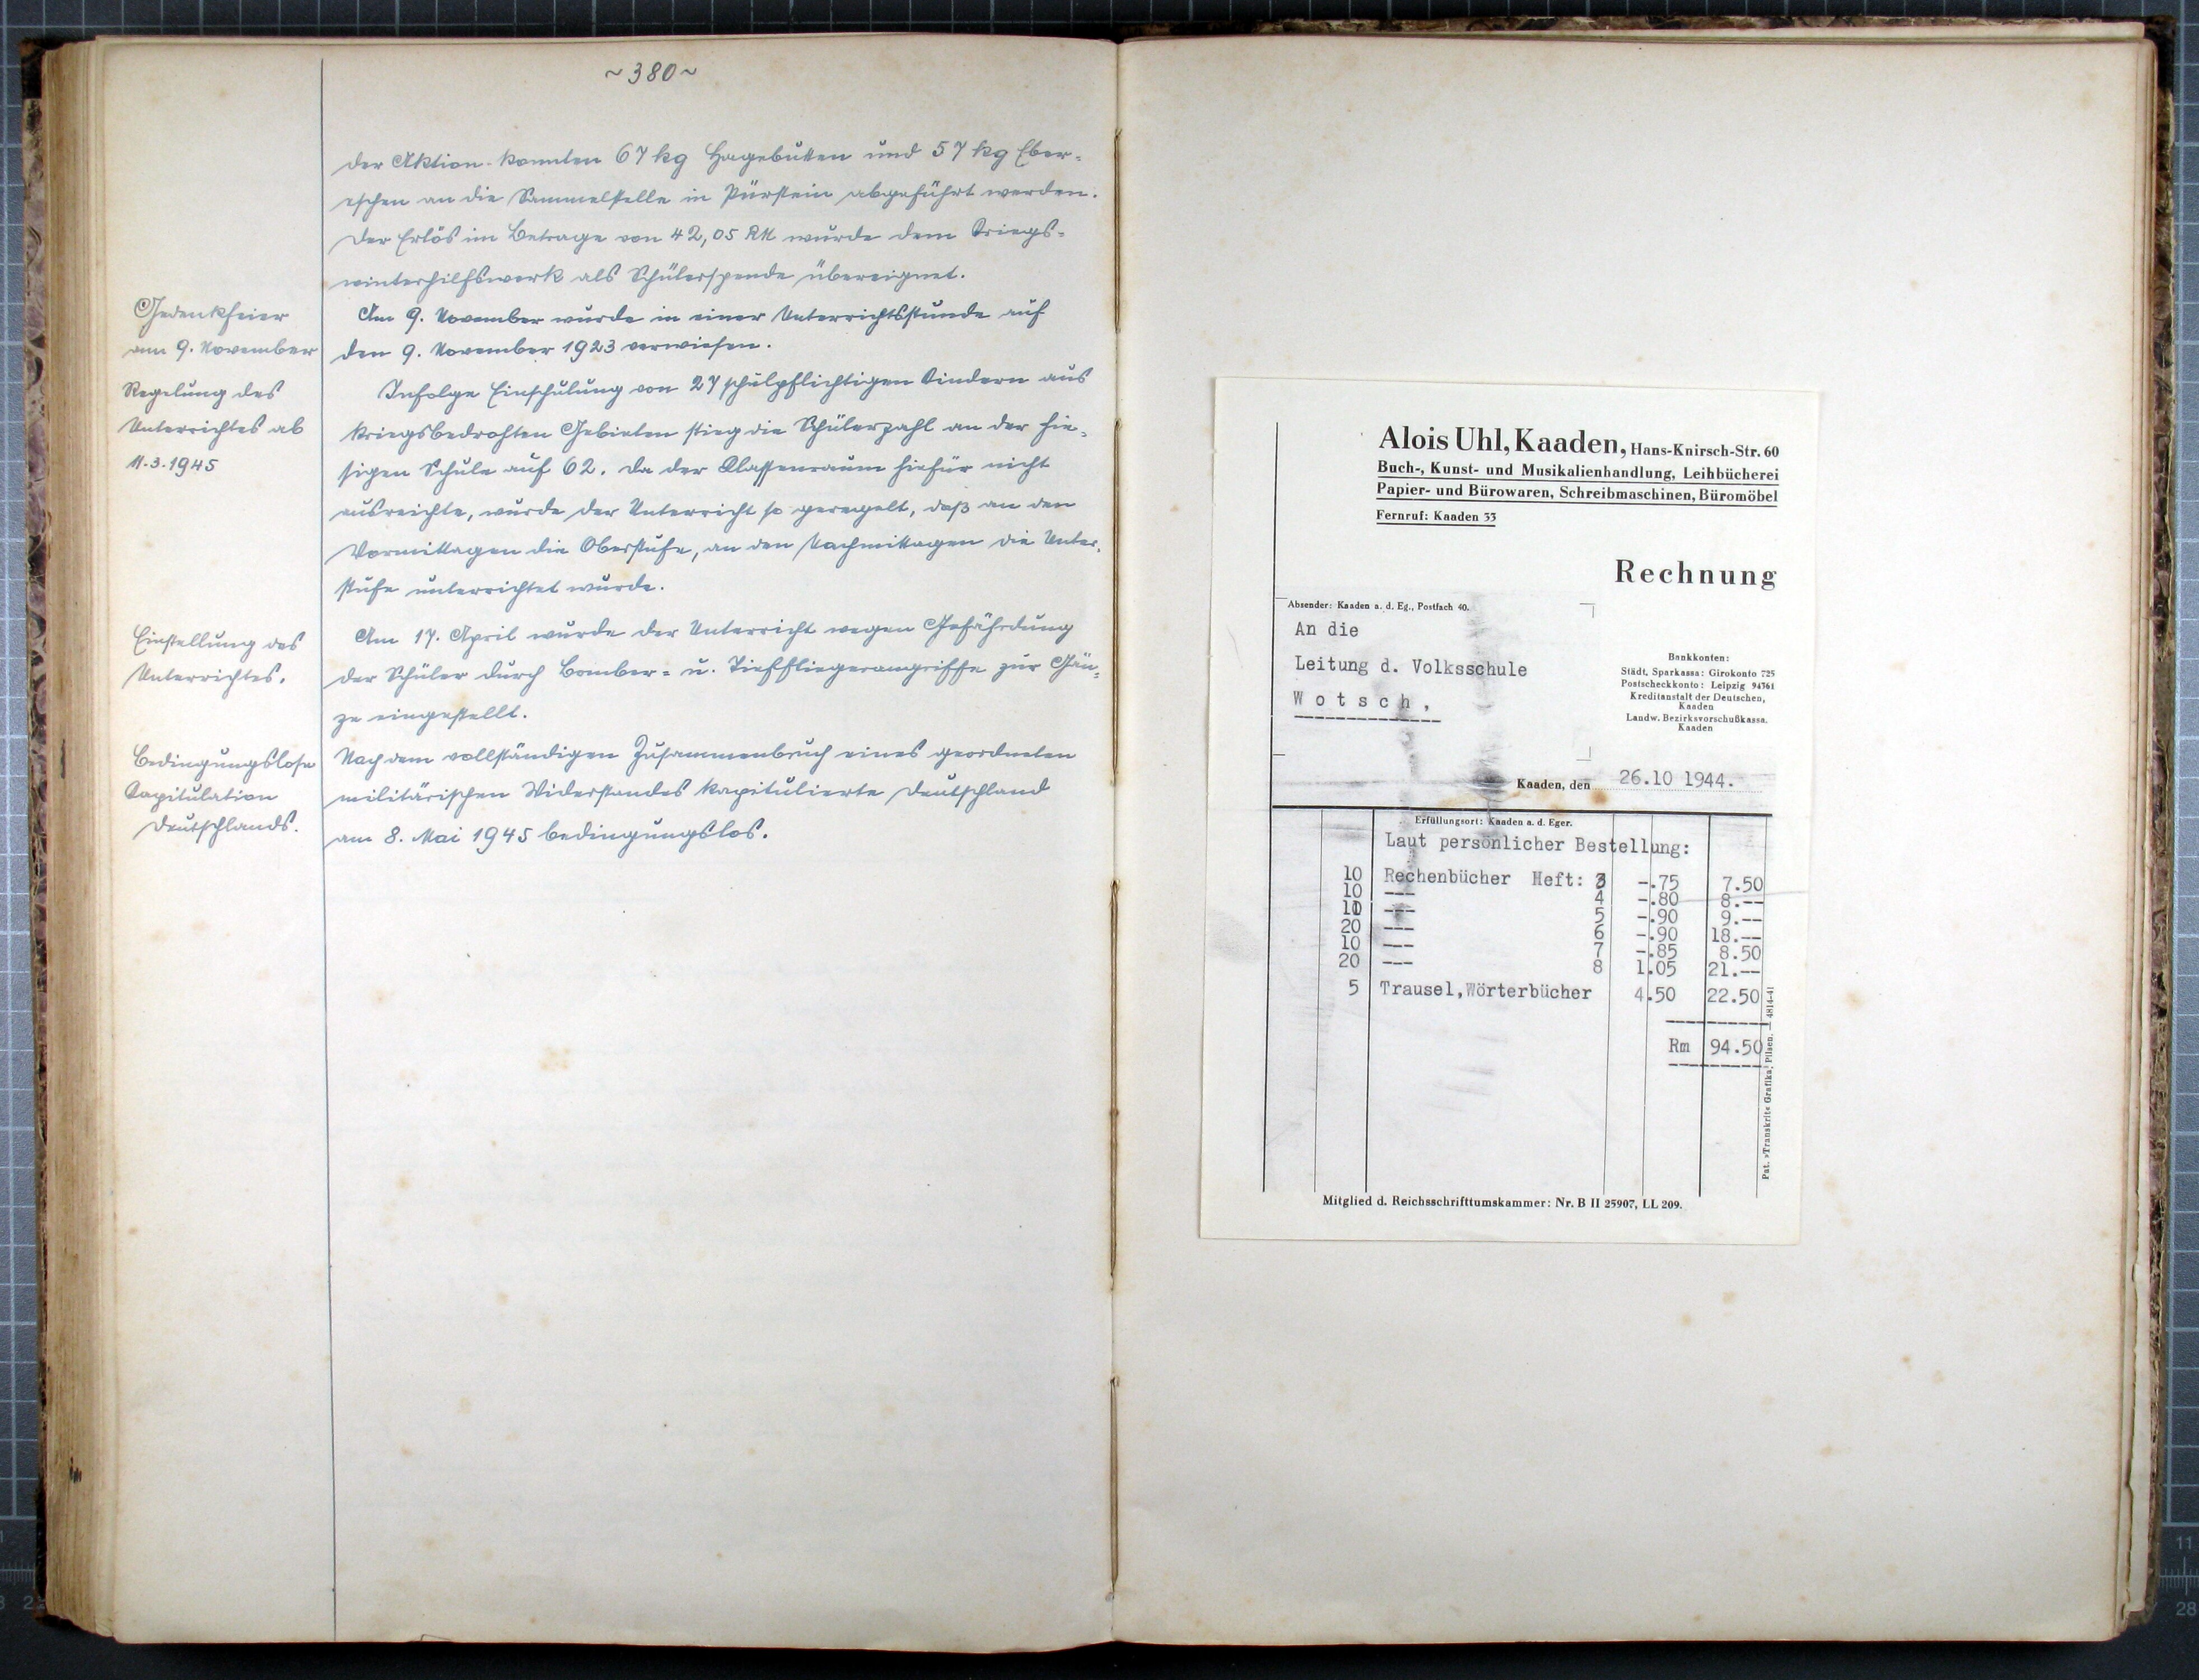 ~380~
der Aktion konnten 67 kg Hagebutten und 57 kg Eber-
eschen an die Sammelstelle in Pürstein abgeführt werden.
Der Erlös im Betrage von 42,05 RM wurde dem Kriegs-
winterhilfswerk als Schülerspende übereignet.
Gedenkfeier
am 9. November
Am 9. November wurde in einer Unterrichtsstunde auf
den 9. November 1923 verwiesen.
Regelung des
Unterrichtes ab
11.3.1945
Infolge Einschulung von 27 schulpflichtigen Kindern aus
kriegsbedrohten Gebieten stieg die Schülerzahl an der hie-
sigen Schule auf 62. Da der Klassenraum hiefür nicht
ausreichte, wurde der Unterricht so geregelt, daß an den
Vormittagen die Oberstufe, an den Nachmittagen die Unter-
stufe unterrichtet wurde.
Einstellung des
Unterrichtes.
Am 17. April wurde der Unterricht wegen Gefährdung
der Schüler durch Bomber- u. Tieffliegerangriffe zur Gän-
ze eingestellt.
Bedingungslose
Kapitulation
Deutschlands.
Nach dem vollständigen Zusammenbruch eines geordneten
militärischen Widerstandes kapitulierte Deutschland
am 8. Mai 1945 bedingungslos.
Alois Uhl, Kaaden, Hans-Knirsch-Str. 60
Buch-, Kunst- und Musikalienhandlung, Leihbücherei
Papier- und Bürowaren, Schreibmaschinen, Büromöbel
Fernruf: Kaaden 33
Rechnung
Absender: Kaaden a. d. Eg., Postfach 40.
An die
Leitung d. Volksschule
Wotsch,
Bankkonten:
Städt. Sparkassa: Girokonto 725
Postscheckkonto: Leipzig 94761
Kreditanstalt der Deutschen,
Kaaden
Landw. Bezirksvorschußkassa.
Kaaden
Kaaden, den 26.10 1944.
Erfüllungsort: Kaaden a. d. Eger.
Laut persönlicher Bestellung:
10 Rechenbücher Heft: 3 -.75 7.50
10 --- 4 -.80 8.--
10 --- 5 -.90 9.--
20 --- 6 -.90 18.--
10 --- 7 -.85 8.50
20 --- 8 1.05 21.--
5 Trausel,Wörterbücher 4.50 22.50
Rm 94.50
Pat. »Transkrit« Grafika, Pilsen. — 4814-41
Mitglied d. Reichsschrifttumskammer: Nr. B II 25907, LL 209.
11
28